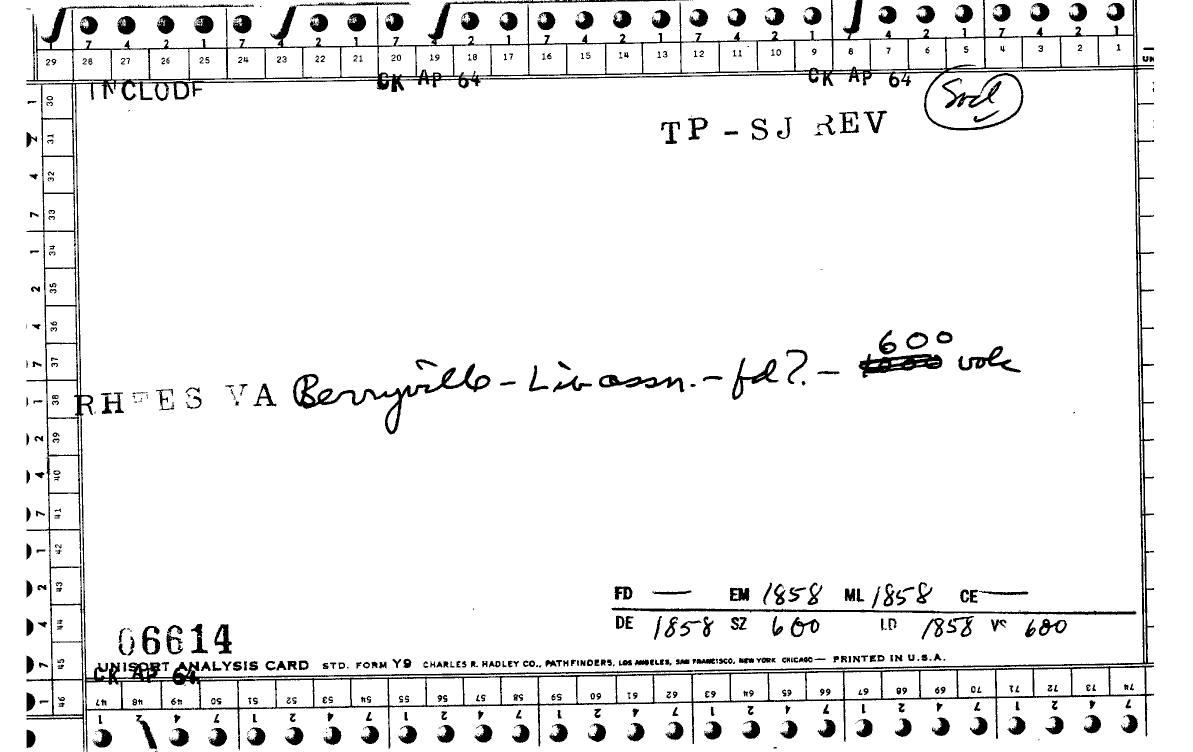 7 4 2 1 7 4 2 1 7 4 2 1 7 4 2 1 7 4 2 1 7 4 2 1
29 28 27 26 25 24 23 22 21 20 19 18 17 16 15 14 13 12 11 10 9 8 7 6 5 4 3 2 1
INCLUDE CK AP 64 CK AP 64
TP-SJ REV
30
31
32
33
34
35
36
37
38
39
40
41
42
43
44
45
46
600
RHEES VA Berryville - Lib assn. - fd?. - 1000 vols
FD — EM 1858 ML 1858 CE —
DE 1858 SZ 600 LD 1858 VS 600
06614
UNISORT ANALYSIS CARD STD. FORM Y9 CHARLES R. HADLEY CO., PATHFINDERS, LOS ANGELES, SAN FRANCISCO, NEW YORK CHICAGO — PRINTED IN U.S.A.
CK AP 64
47 48 49 50 51 52 53 54 55 56 57 58 59 60 61 62 63 64 65 66 67 68 69 70 71 72 73 74